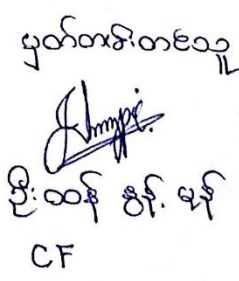 မှတ်တမ်းတင်သူ
ဦးထန် နွန့် မုန်
CF